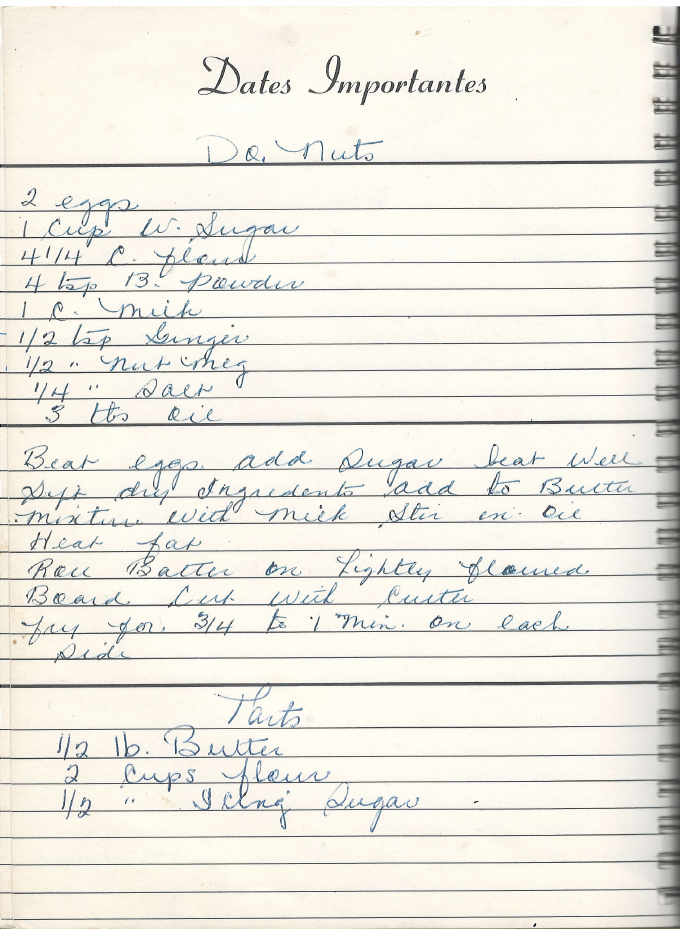 Dates Importantes
Do. Nuts
2 eggs
1 Cup W. Sugar
4 1/4 C. flour
4 tsp B. Powder
1 C. Milk
1/2 tsp Ginger
1/2 " Nut meg
1/4 " Salt
3 tbs Oil
Beat eggs add Sugar beat Well
Sift dry Ingredents add to Butter
Mixture with Milk Stir in Oil
Heat fat
Roll Batter on Lightly floured
Board Cut With Cutter
fry for. 3/4 to 1 Min. on each
Side
Tarts
1/2 lb. Butter
2 Cups flour
1/2 " Icing Sugar